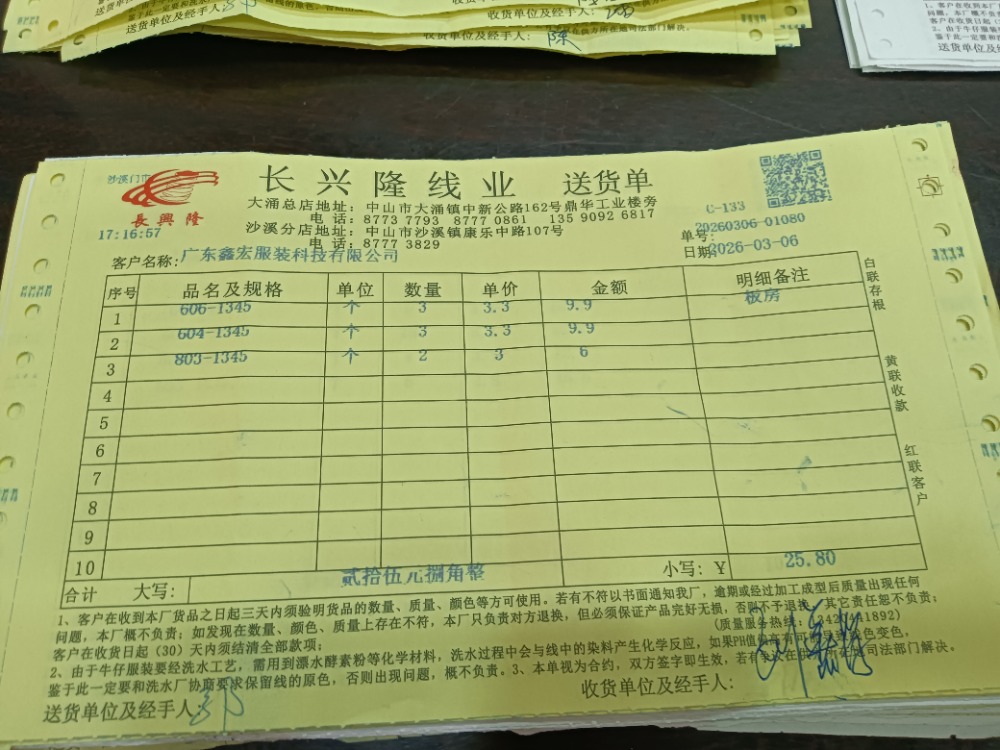 送货单位及经手人:
收货单位及经手人:
收货单位及经手人: 陈
沙溪门市
長興隆
17:16:57
长兴隆线业 送货单
大涌总店地址: 中山市大涌镇中新公路162号鼎华工业楼旁
电话: 8773 7793 8777 0861 135 9092 6817
沙溪分店地址: 中山市沙溪镇康乐中路107号
电话: 8777 3829
C-133
单号: 20260306-01080
日期: 2026-03-06
客户名称: 广东鑫宏服装科技有限公司
序号 品名及规格 单位 数量 单价 金额 明细备注
1 606-1345 个 3 3.3 9.9 板房
2 604-1345 个 3 3.3 9.9
3 803-1345 个 2 3 6
4
5
6
7
8
9
10
合计 大写: 贰拾伍元捌角整 小写: ¥ 25.80
白联存根
黄联收款
红联客户
1、客户在收到本厂货品之日起三天内须验明货品的数量、质量、颜色等方可使用。若有不符以书面通知我厂, 逾期或经过加工成型后质量出现任何
问题, 本厂概不负责; 如发现在数量、颜色、质量上存在不符, 本厂只负责对方退换, 但必须保证产品完好无损, 否则不予退换, 其它责任恕不负责;
客户在收货日起(30)天内须结清全部款项;
(质量服务热线:
2、由于牛仔服装要经洗水工艺, 需用到漂水酵素粉等化学材料, 洗水过程中会与线中的染料产生化学反应, 如果PH值
变色,
鉴于此一定要和洗水厂协商要求保留线的原色, 否则出现问题, 概不负责。3、本单视为合约, 双方签字即生效, 若有
司法部门解决。
送货单位及经手人: 郭
收货单位及经手人: